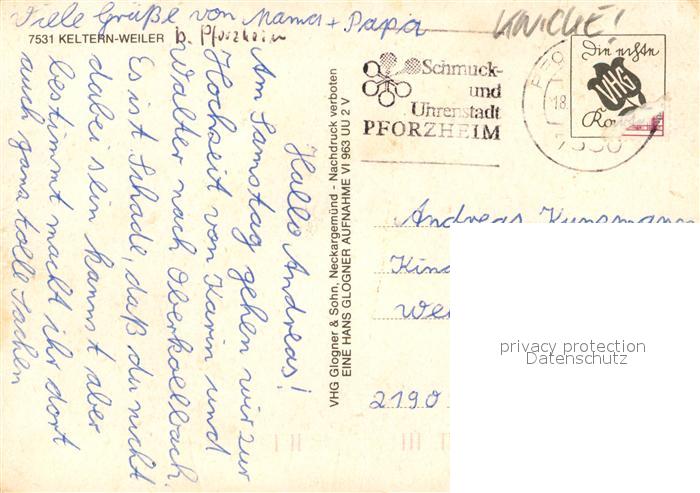 Viele Grüße von Mama + Papa
KNICKE!
7531 KELTERN-WEILER b. Pforzheim
Hallo Andreas!
Am Samstag gehen wir zur
Hochzeit von Karin und
Walter nach Oberkollbach.
Es ist Schade, daß du nicht
dabei sein kannst aber
bestimmt macht ihr dort
auch ganz tolle Sachen
VHG Glogner & Sohn, Neckargemünd - Nachdruck verboten
EINE HANS GLOGNER AUFNAHME VI 963 UU 2 V
Schmuck-
und
Uhrenstadt
PFORZHEIM
18.
Die echte
VHG
Andreas Kunzmann
Kin
We
2190
privacy protection
Datenschutz